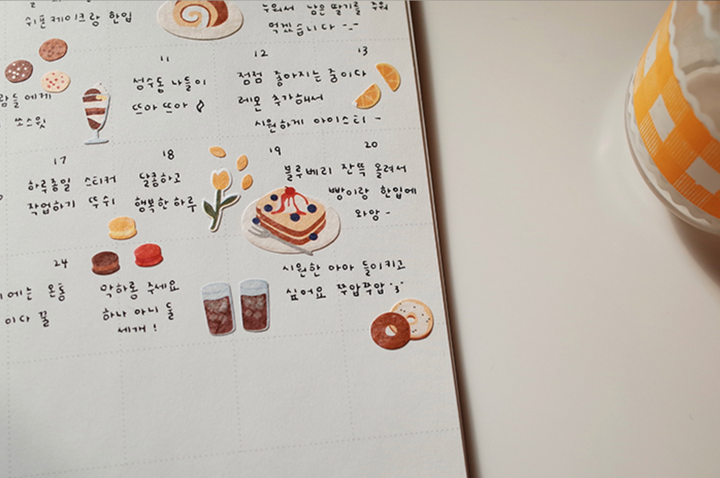 쉬폰케이크랑 한입
누워서 남은 딸기를 주워
먹겠습니다 -.-
11
12
13
람들에게
쏘스윗
성수동 나들이
뜨아 뜨아
점점 좋아지는 중이다
레몬 추가해서
시원하게 아이스티 -
17
18
19
20
하루종일 스티커
작업하기 뚜쉬
달콤하고
행복한 하루
블루베리 잔뜩 올려서
빵이랑 한입에
와앙 -
24
에는 온통
이다 꿀
막하롱 주세요
하나 아니 둘
세개 !
시원한 아아 들이키고
싶어요 쭈압쭈압